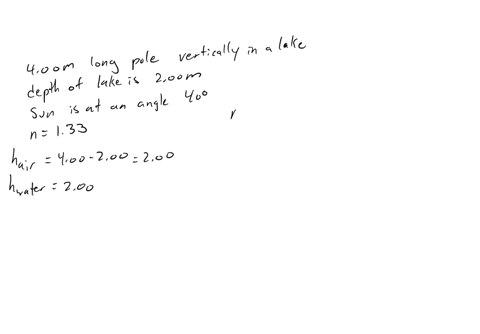 4.00m long pole vertically in a lake
depth of lake is 2.00m
Sun is at an angle 40°
n = 1.33
h air = 4.00 - 2.00 = 2.00
h water = 2.00